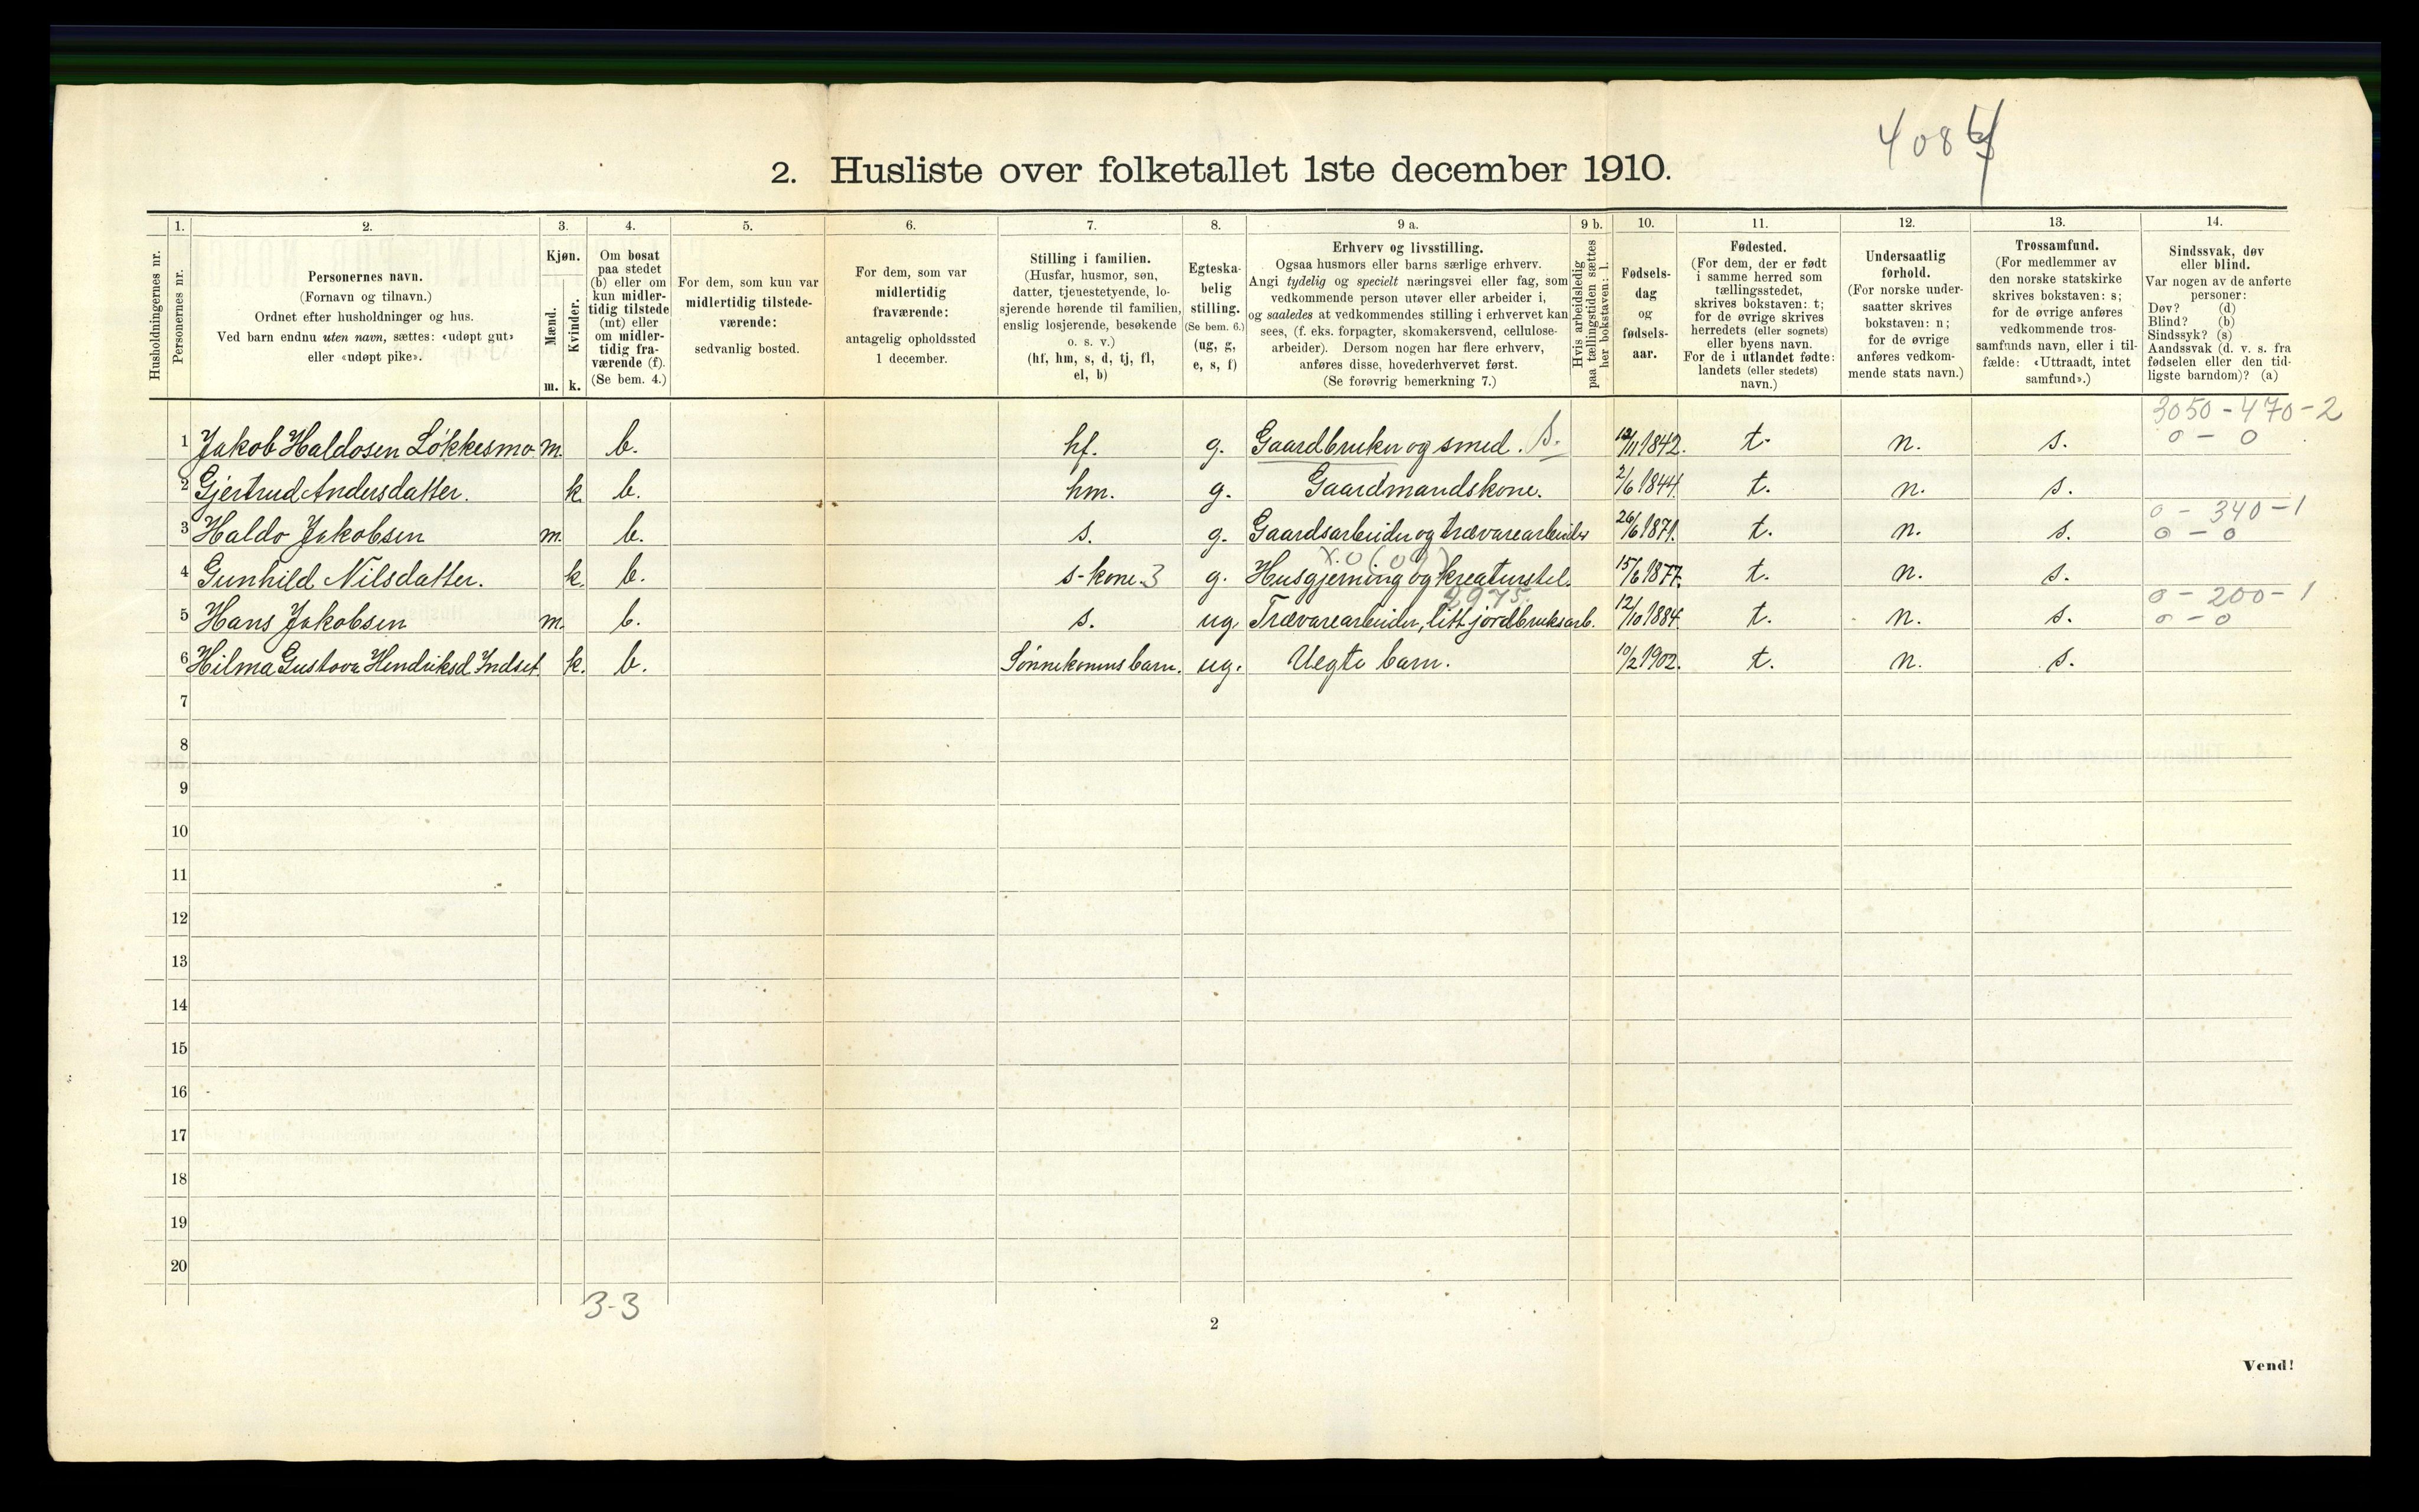 408
2. Husliste over folketallet 1ste december 1910.
Husholdningernes nr.
1.
Personernes nr.
2.
Personernes navn.
(Fornavn og tilnavn.)
Ordnet efter husholdninger og hus.
Ved barn endnu uten navn, sættes: «udøpt gut»
eller «udøpt pike».
3.
Kjøn.
Mænd.
Kvinder.
m. k.
4.
Om bosat
paa stedet
(b) eller om
kun midler-
tidig tilstede
(mt) eller
om midler-
tidig fra-
værende (f).
(Se bem. 4.)
5.
For dem, som kun var
midlertidig tilstede-
værende:
sedvanlig bosted.
6.
For dem, som var
midlertidig
fraværende:
antagelig opholdssted
1 december.
7.
Stilling i familien.
(Husfar, husmor, søn,
datter, tjenestetyende, lo-
sjerende hørende til familien,
enslig losjerende, besøkende
o. s. v.)
(hf, hm, s, d, tj, fl,
el, b)
8.
Egteska-
belig
stilling.
(Se bem. 6.)
(ug, g,
e, s, f)
9 a.
Erhverv og livsstilling.
Ogsaa husmors eller barns særlige erhverv.
Angi tydelig og specielt næringsvei eller fag, som
vedkommende person utøver eller arbeider i,
og saaledes at vedkommendes stilling i erhvervet kan
sees, (f. eks. forpagter, skomakersvend, cellulose-
arbeider). Dersom nogen har flere erhverv,
anføres disse, hovederhvervet først.
(Se forøvrig bemerkning 7.)
9 b.
Hvis arbeidsledig
paa tællingstiden sættes
her bokstaven: l.
10.
Fødsels-
dag
og
fødsels-
aar.
11.
Fødested.
(For dem, der er født
i samme herred som
tællingsstedet,
skrives bokstaven: t;
for de øvrige skrives
herredets (eller sognets)
eller byens navn.
For de i utlandet fødte:
landets (eller stedets)
navn.)
12.
Undersaatlig
forhold.
(For norske under-
saatter skrives
bokstaven: n;
for de øvrige
anføres vedkom-
mende stats navn.)
13.
Trossamfund.
(For medlemmer av
den norske statskirke
skrives bokstaven: s;
for de øvrige anføres
vedkommende tros-
samfunds navn, eller i til-
fælde: «Uttraadt, intet
samfund».)
14.
Sindssvak, døv
eller blind.
Var nogen av de anførte
personer:
Døv? (d)
Blind? (b)
Sindssyk? (s)
Aandssvak (d. v. s. fra
fødselen eller den tid-
ligste barndom)? (a)
3050 - 470 - 2
1 Jakob Haldosen Løkkesmo m. b. hf. g. Gaardbruker og smed. S. 12/11 1842. t. n. s. 0 - 0
2 Gjertrud Andersdatter. k. b. hm. g. Gaardmandskone. 2/6 1844. t. n. s.
0 - 340 - 1
3 Haldo Jakobsen m. b. s. g. Gaardsarbeider og trævarearbeider 26/6 1871. t. n. s. 0 - 0
x.0 (00)
4 Gunhild Nilsdatter. k. b. s-kone. 3 g. Husgjerning og kreaturstel. 15/6 1877. t. n. s.
2975. 0 - 200 - 1
5 Hans Jakobsen m. b. s. ug. Trævarearbeider, litt jordbruksarb. 12/10 1884. t. n. s. 0 - 0
6 Hilma Gustova Hendriksd. Indset. k. b. Sønnekonens barn. ug. Uegte barn. 10/2 1902. t. n. s.
7
8
9
10
11
12
13
14
15
16
17
18
19
20
3-3
2
Vend!